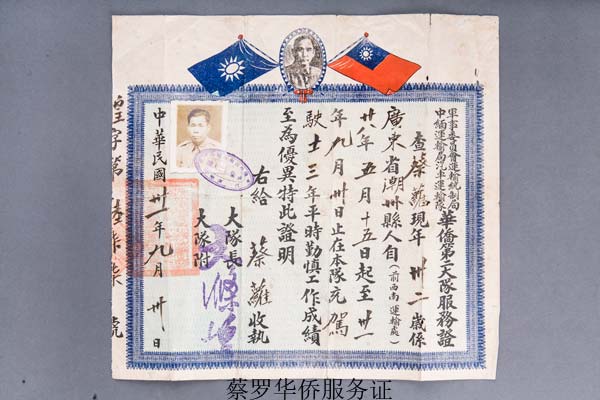 軍事委員會運輸統制局
中緬運輸局汽車運輸隊
華僑第二大隊服務證
查蔡蘿現年卅二歲係
廣東省潮州縣人自(前西南運輸處)
廿八年五月十五日起至卅一
年九月卅日止在本隊充駕
駛士三年平時勤慎工作成績
至為優異特此證明
右給 蔡蘿收執
大隊長
大隊附
中華民國卅一年九月卅日
字第 號
蔡罗华侨服务证